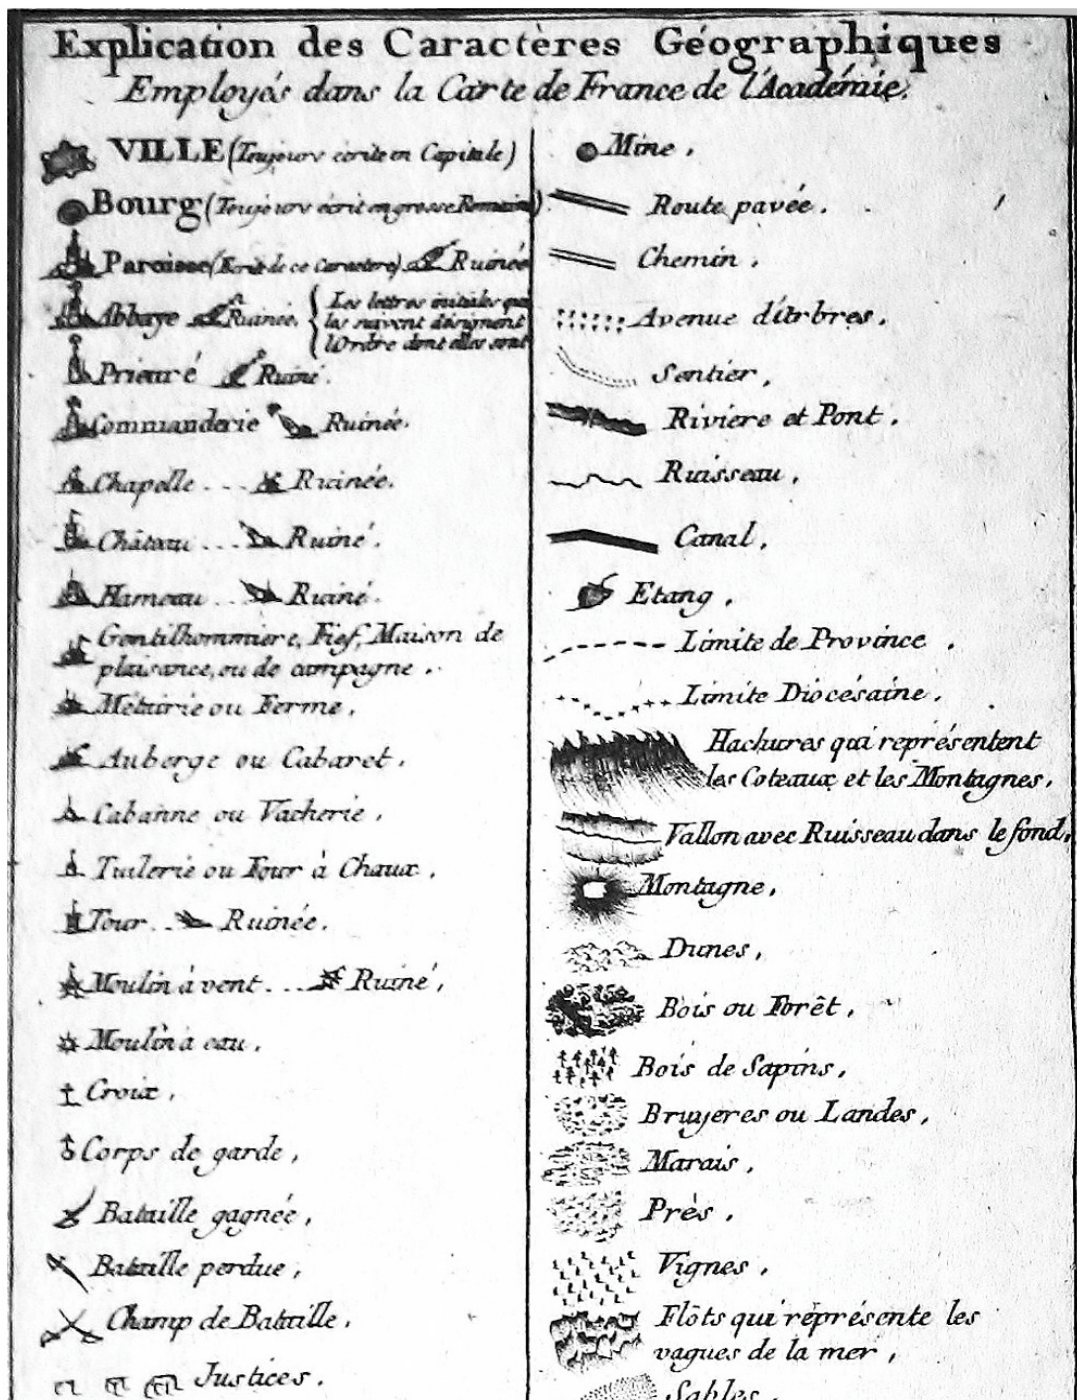 Explication des Caractères Géographiques
Employés dans la Carte de France de l'Académie.
VILLE (Toujours écrite en Capitale)
Bourg (Toujours écrit en grosse Romaine)
Paroisse (Ecrite de ce Caractere) Ruinée
Abbaye Ruinée. { Les lettres initiales qui
les suivent désignent
l'Ordre dont elles sont
Prieuré Ruiné.
Commanderie Ruinée.
Chapelle ... Ruinée.
Château ... Ruiné.
Hameau ... Ruiné.
Gentilhommiere, Fief, Maison de
plaisance, ou de campagne.
Métairie ou Ferme,
Auberge ou Cabaret,
Cabanne ou Vacherie,
Tuilerie ou Four à Chaux,
Tour .. Ruinée.
Moulin à vent ... Ruiné,
Moulin à eau,
Croix,
Corps de garde,
Bataille gagnée,
Bataille perdue,
Champ de Bataille,
Justices.
Mine,
Route pavée.
Chemin,
Avenue d'Arbres,
Sentier,
Riviere et Pont,
Ruisseau,
Canal,
Etang,
Limite de Province,
Limite Diocésaine,
Hachures qui représentent
les Coteaux et les Montagnes,
Vallon avec Ruisseau dans le fond,
Montagne,
Dunes,
Bois ou Forêt,
Bois de Sapins,
Bruyeres ou Landes,
Marais,
Près,
Vignes,
Flôts qui réprésente les
vagues de la mer,
Sables,